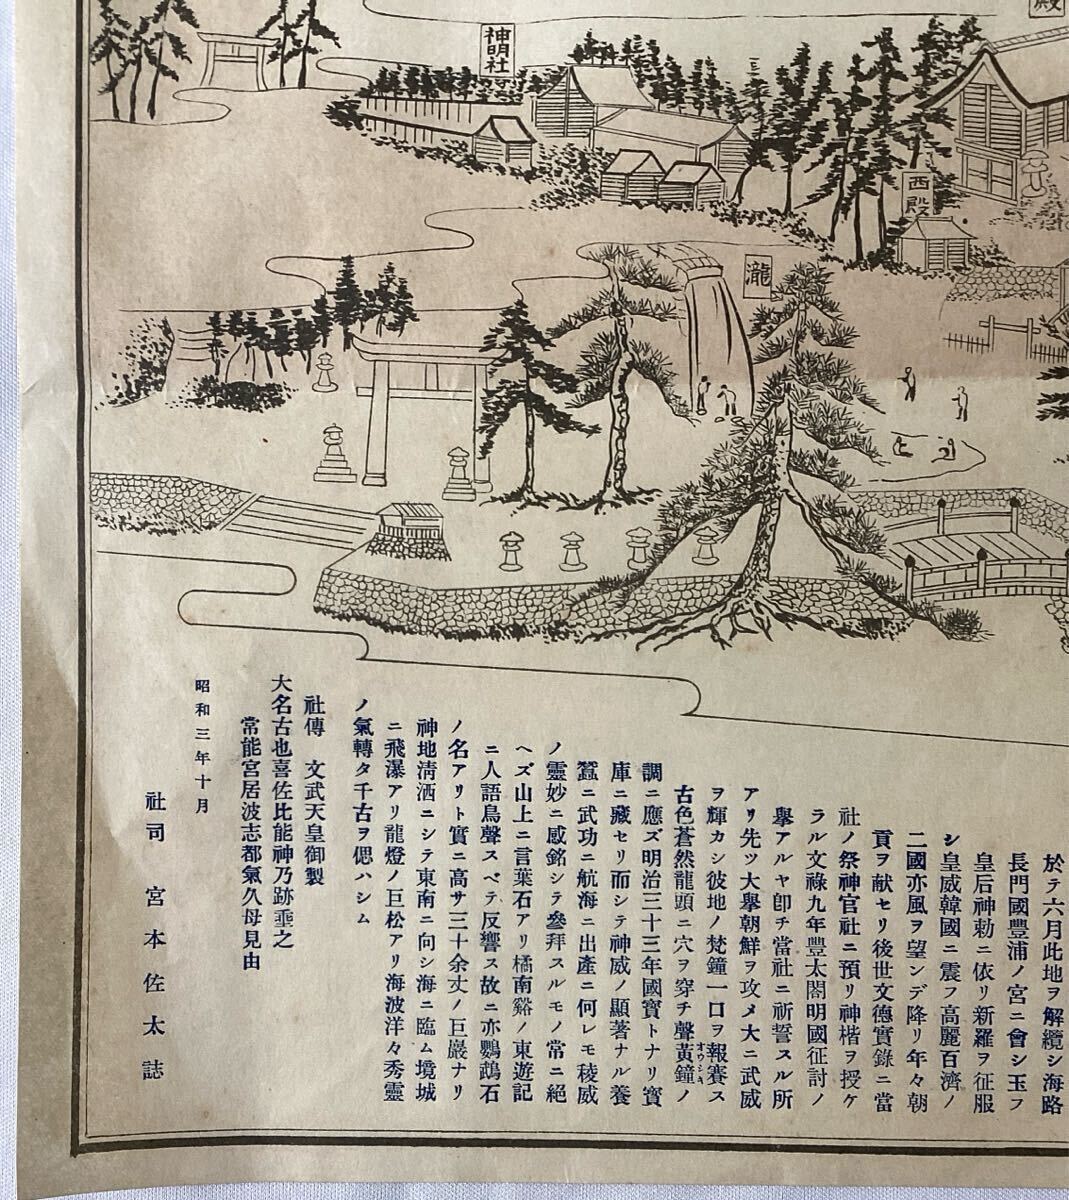 殿
神明社
西殿
瀧
於テ六月此地ヲ解纜シ海路
長門國豐浦ノ宮ニ會シ玉フ
皇后神勅ニ依リ新羅ヲ征服
シ皇威韓國ニ震フ高麗百濟ノ
二國亦風ヲ望ンデ降リ年々朝
貢ヲ献セリ後世文德實錄ニ當
社ノ祭神官社ニ預リ神楷ヲ授ケ
ラル文祿九年豐太閤明國征討ノ
擧アルヤ卽チ當社ニ祈誓スル所
アリ先ツ大擧朝鮮ヲ攻メ大ニ武威
ヲ輝カシ彼地ノ梵鐘一口ヲ報賽ス
古色蒼然龍頭ニ穴ヲ穿チ聲黃鐘ノ
オウシキ
調ニ應ズ明治三十三年國寶トナリ寶
庫ニ藏セリ而シテ神威ノ顯著ナル養
蠶ニ武功ニ航海ニ出產ニ何レモ稜威
ノ靈妙ニ感銘シテ參拜スルモノ常ニ絕
ヘズ山上ニ言葉石アリ橘南谿ノ東遊記
ニ人語鳥聲スベテ反響ス故ニ亦鸚鵡石
ノ名アリト實ニ高サ三十余丈ノ巨巖ナリ
神地淸洒ニシテ東南ニ向シ海ニ臨ム境城
ニ飛瀑アリ龍燈ノ巨松アリ海波洋々秀靈
ノ氣轉タ千古ヲ偲ハシム
社傳　文武天皇御製
大名古也喜佐比能神乃跡垂之
常能宮居波志都氣久母見由
昭和三年十月
社司　宮本佐太誌